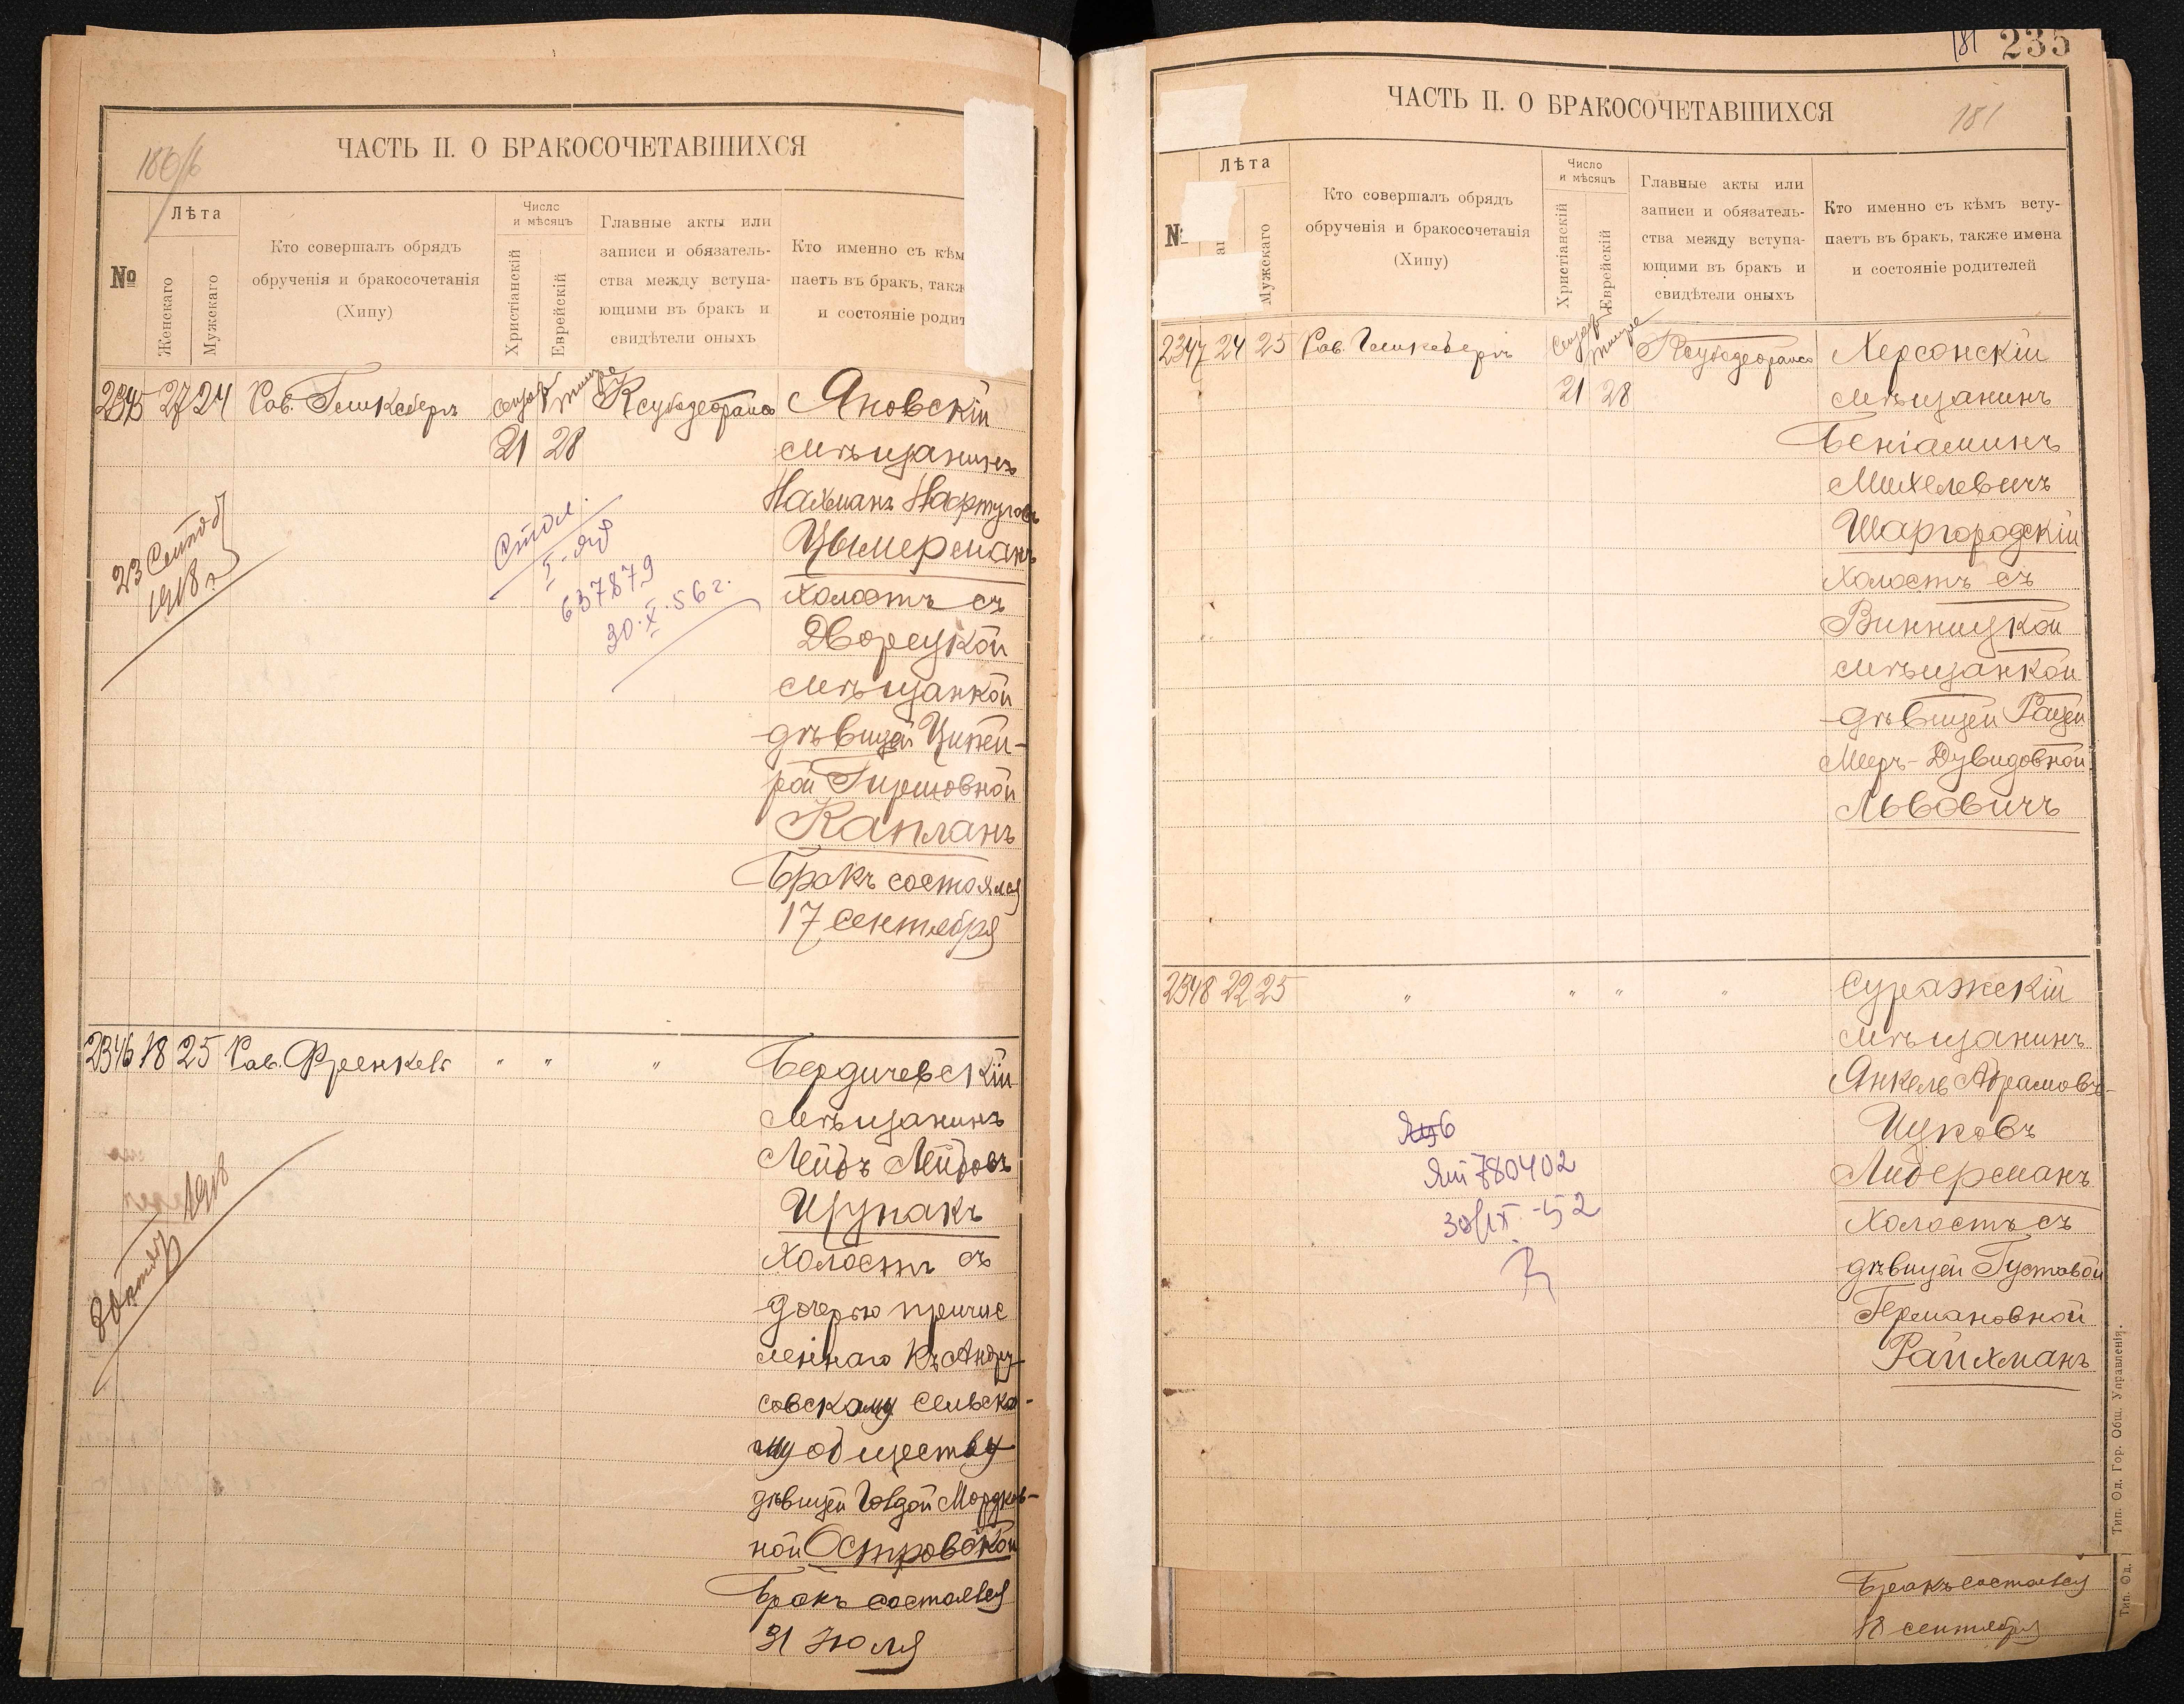 180/16
ЧАСТЬ II. О БРАКОСОЧЕТАВШИХСЯ
№
Лѣта
Женскаго
Мужскаго
Кто совершалъ обрядъ
обрученія и бракосочетанія
(Хипу)
Число
и мѣсяцъ
Христіанскій
Еврейскій
Главные акты или
записи и обязатель-
ства между вступа-
ющими въ бракъ и
свидѣтели оныхъ
Кто именно съ кѣм
паетъ въ бракъ, такж
и состояніе родит
2345 27 24 Рав.
21 28
Яновскій
мѣщанинъ
Нахманъ
Цымерманъ
холостъ съ
Дворецкой
мѣщанкой
дѣвицей Ципей-
рой Гершовной
Капланъ
Бракъ состоялся
17 сентября
1918 г.
637879
30.X.56 г.
2346 18 25 Рав. Френкель " " "
Бердичевскій
мѣщанинъ
Лейбъ Лейбовъ
Цупакъ
холостъ съ
дочерью причис
леннаго къ Андру-
совскому сельско-
му обществу
дѣвицей Голдой Мордков-
ной Островской
Бракъ состоялся
31 Іюля
1918
181 235
ЧАСТЬ II. О БРАКОСОЧЕТАВШИХСЯ
181
Лѣта
Мужскаго
Кто совершалъ обрядъ
обрученія и бракосочетанія
(Хипу)
Число
и мѣсяцъ
Христіанскій
Еврейскій
Главные акты или
записи и обязатель-
ства между вступа-
ющими въ бракъ и
свидѣтели оныхъ
Кто именно съ кѣмъ всту-
паетъ въ бракъ, также имена
и состояніе родителей
2347 24 25 Рав.
21 28
Херсонскій
мѣщанинъ
Беніаминъ
Михелевичъ
Шаргородскій
холостъ съ
Винницкой
мѣщанкой
дѣвицей Рацей
Меръ-Дувидовной
Львовичъ
2348 22 25 " " " "
Суражскій
мѣщанинъ
Янкель Абрамовъ-
Ицковъ
Либерманъ
холостъ съ
дѣвицей Густавой
Германовной
Райхманъ
780402
30/IX-52
Бракъ состоялся
18 сентября
Тип. Од. Гор. Общ. Управленія.
Тип. Од.